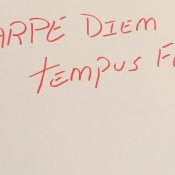 ARPE DIEM
TEMPUS F